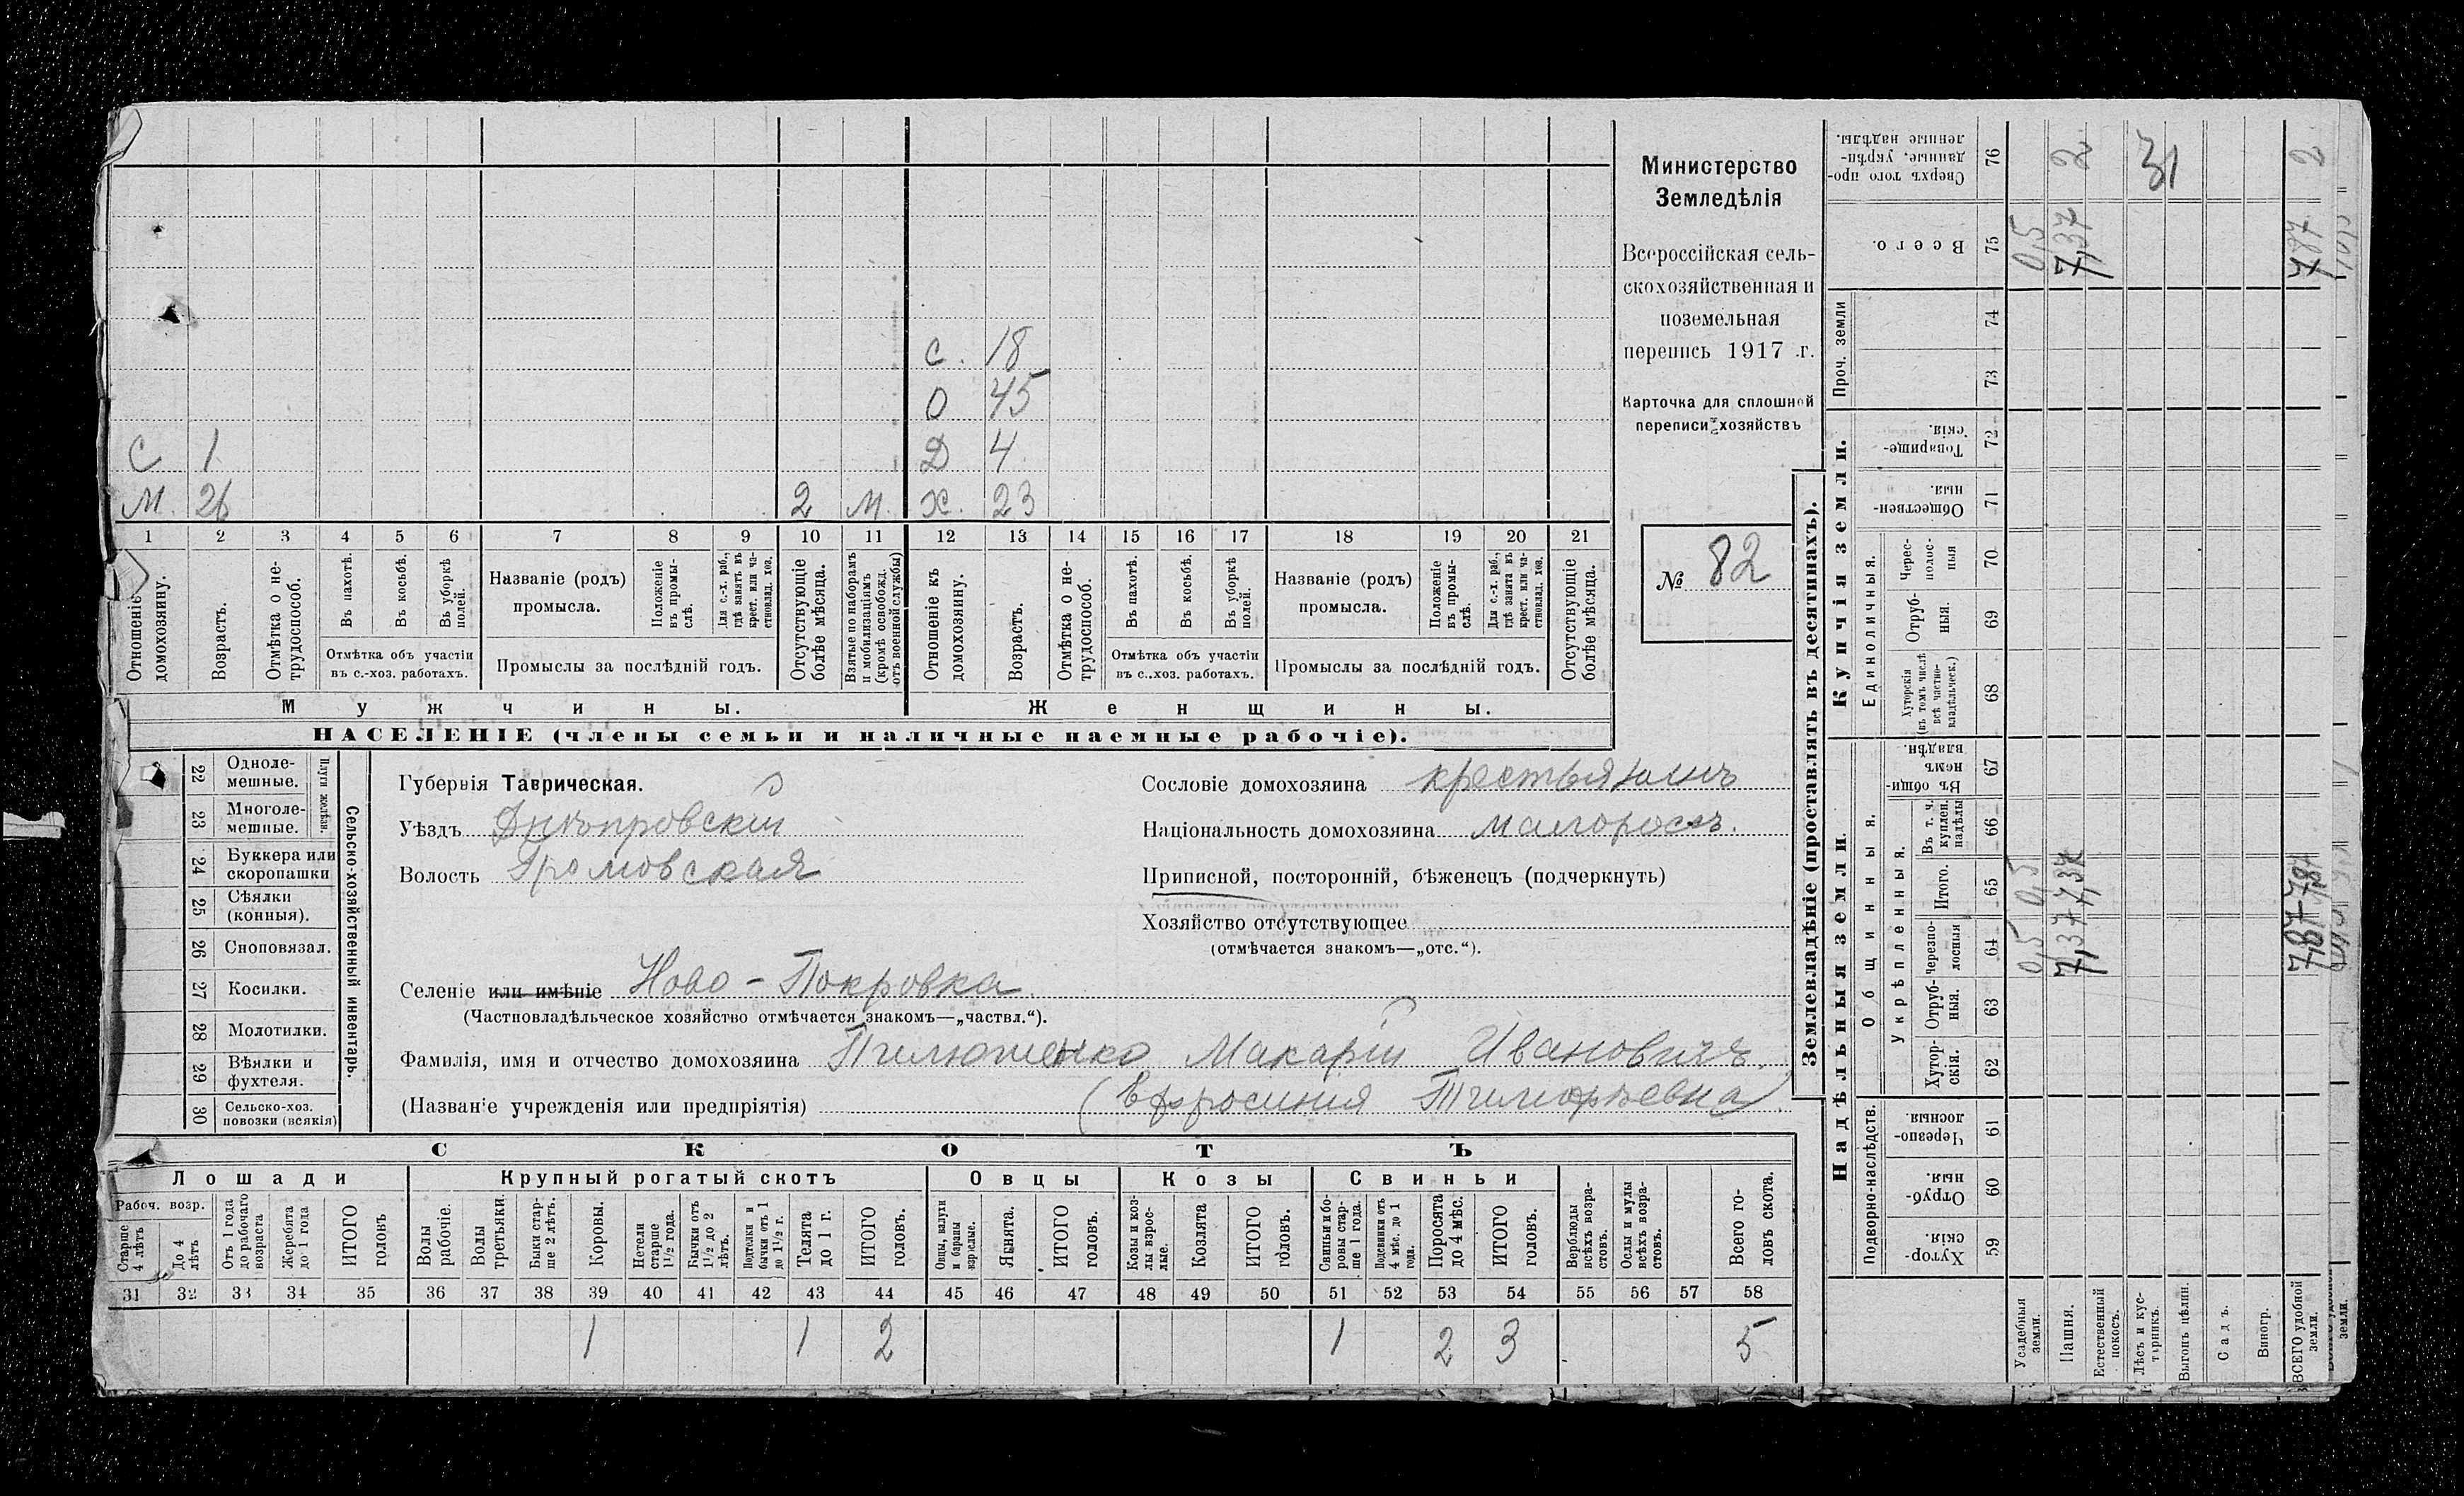 С. 18
О 45
С 1 Д 4
М. 26 2 М. Х. 23
1 2 3 4 5 6 7 8 9 10 11 12 13 14 15 16 17 18 19 20 21
Отношеніе домохозяину.
Возрастъ.
Отмѣтка о не-
трудоспособ.
Въ пахотѣ.
Въ косьбѣ.
Въ уборкѣ
полей.
Отмѣтка объ участіи
въ с.-хоз. работахъ.
Названіе (родъ)
промысла.
Положеніе
въ промы-
слѣ.
Для с.-х. раб.,
гдѣ занятъ въ
крест. или ча-
стновлад. хоз.
Промыслы за послѣдній годъ.
Отсутствующіе
болѣе мѣсяца.
Взятые по наборамъ
и мобилизаціямъ
(кромѣ освобожд.
отъ военной службы)
Отношеніе къ
домохозяину.
Возрастъ.
Отмѣтка о не-
трудоспособ.
Въ пахотѣ.
Въ косьбѣ.
Въ уборкѣ
полей.
Отмѣтка объ участіи
въ с.-хоз. работахъ.
Названіе (родъ)
промысла.
Положеніе
въ промы-
слѣ.
Для с.-х. раб.,
гдѣ занята въ
крест. или ча-
стновлад. хоз.
Промыслы за послѣдній годъ.
Отсутствующіе
болѣе мѣсяца.
Мужчины.
Женщины.
НАСЕЛЕНІЕ (члены семьи и наличные наемные рабочіе).
Министерство
Земледѣлія
Всероссійская сель-
скохозяйственная и
поземельная
перепись 1917 г.
Карточка для сплошной
переписи хозяйствъ
№ 82
22 Одноле-
мешные.
23 Многоле-
мешные.
24 Буккера или
скоропашки
25 Сѣялки
(конныя).
26 Сноповязал.
27 Косилки.
28 Молотилки.
29 Вѣялки и
фухтеля.
30 Сельско-хоз.
повозки (всякія)
Сельско-хозяйственный инвентарь.
Губернія Таврическая.
Уѣздъ Днѣпровскій
Волость Громовская
Селеніе или имѣніе Ново-Покровка.
(Частновладѣльческое хозяйство отмѣчается знакомъ—„частвл.“).
Фамилія, имя и отчество домохозяина Пилюшенко Макарій Ивановичъ.
(Названіе учрежденія или предпріятія) (Ефросинія Тимофѣевна)
Сословіе домохозяина крестьянинъ
Національность домохозяина малороссъ.
Приписной, посторонній, бѣженецъ (подчеркнуть)
Хозяйство отсутствующее
(отмѣчается знакомъ—„отс.“).
СКОТЪ
Лошади Крупный рогатый скотъ Овцы Козы Свиньи
Рабоч. возр.
Старше
4 лѣтъ
До 4
лѣтъ
Отъ 1 года
до рабочаго
возраста
Жеребята
до 1 года
ИТОГО
головъ
Волы
рабочіе.
Волы
третьяки.
Быки стар-
ше 2 лѣтъ.
Коровы.
Нетели
старше
1½ года.
Бычки отъ
1½ до 2
лѣтъ.
Подтелки и
бычки отъ 1
до 1½ г.
Телята
до 1 г.
ИТОГО
головъ.
Овцы, валухи
и бараны
взрослые.
Ягнята.
ИТОГО
головъ.
Козы и коз-
лы взрос-
лые.
Козлята
ИТОГО
головъ.
Свиньи и бо-
ровы стар-
ше 1 года.
Подсвинки отъ
4 мѣс. до 1
года.
Поросята
до 4 мѣс.
ИТОГО
головъ.
Верблюды
всѣхъ возра-
стовъ.
Ослы и мулы
всѣхъ возра-
стовъ.
Всего го-
ловъ скота.
31 32 33 34 35 36 37 38 39 40 41 42 43 44 45 46 47 48 49 50 51 52 53 54 55 56 57 58
1 1 2 1 2 3 5
Землевладѣніе (проставлять въ десятинахъ).
Надѣльныя земли.
Купчія земли.
Проч. земли
Подворно-наслѣдств.
Общинныя.
Укрѣпленныя.
Единоличныя.
Хутор-
скія. 59
Отруб-
ныя. 60
Черезпо-
лосныя 61
Хутор-
скія. 62
Отруб-
ныя. 63
Черезпо-
лосныя 64
Итого. 65
Въ т. ч.
куплен.
надѣлы 66
Въ общи-
номъ
владѣн. 67
Хуторскія
(въ томъ числѣ
всѣ частно-
владѣльческ.) 68
Отруб-
ныя. 69
Черес-
полос-
ныя 70
Обществен-
ныя. 71
Товарище-
скія. 72
73
74
Всего. 75
Сверхъ того про-
данные, укрѣп-
ленные надѣлы. 76
Усадебныя
земли. 0,5 0,5 0,5
Пашня. 7,37 7,37 7,37 2
Естественный
покосъ.
Лѣсъ и кус-
тарникъ. 31
Выгонъ цѣлин.
Садъ.
Виногр.
ВСЕГО удобной
земли. 7,87 7,87 7,87 2